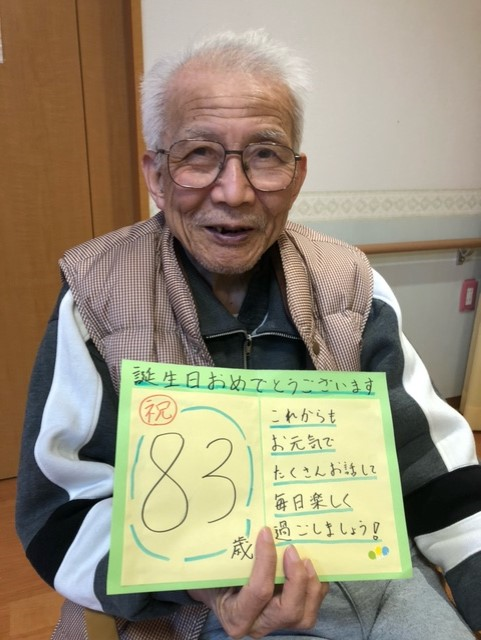 誕生日おめでとうございます
祝
83
歳
これからも
お元気で
たくさんお話して
毎日楽しく
過ごしましょう!